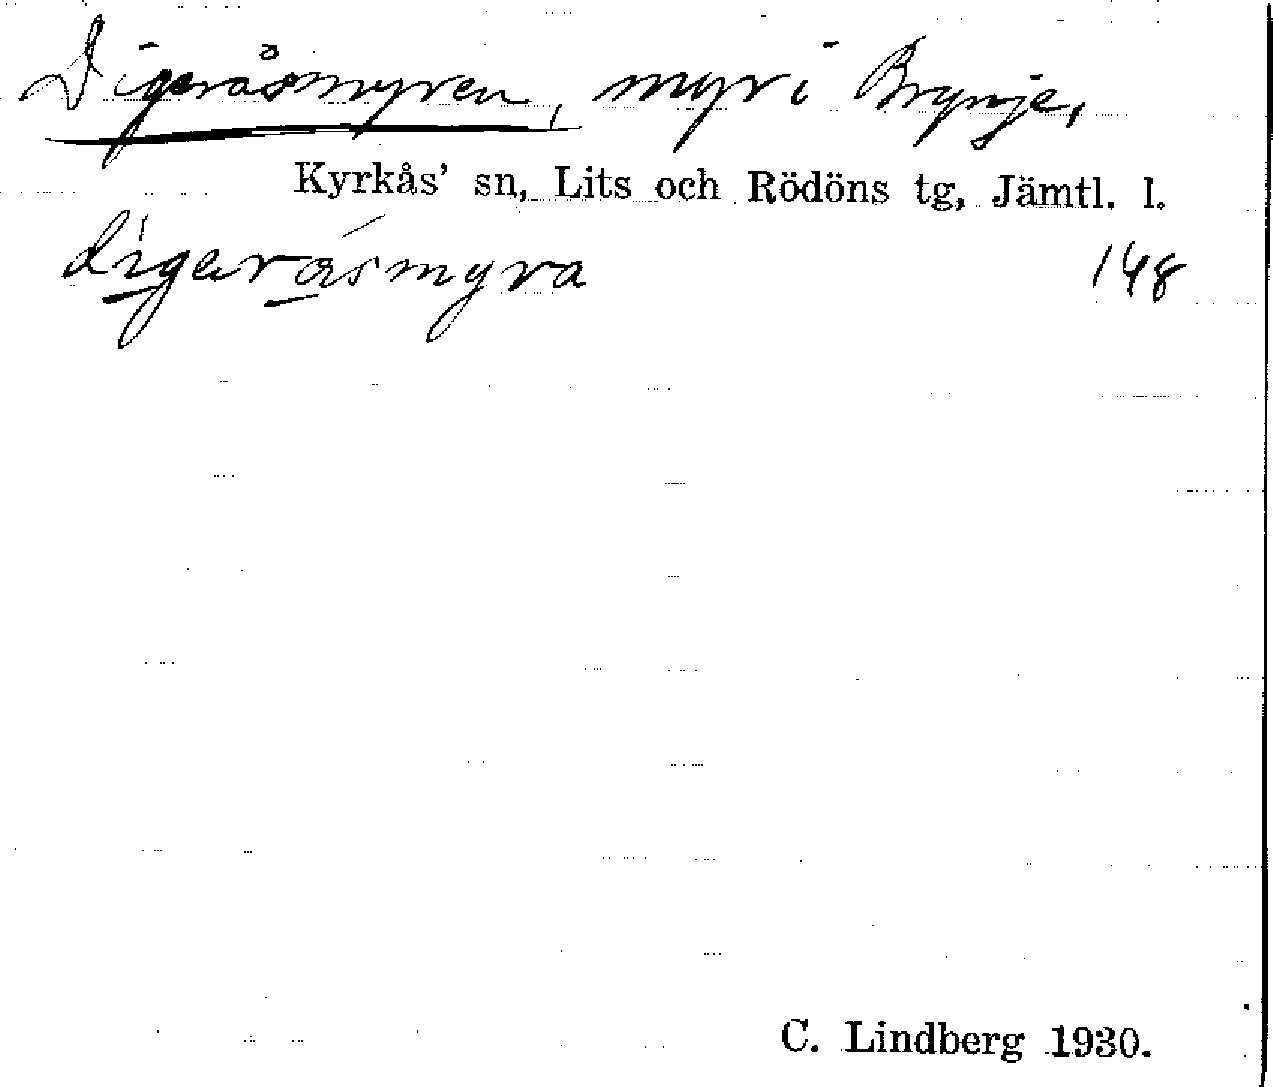 Digeråsmyren, myr i Brynje,
Kyrkås' sn, Lits och Rödöns tg, Jämtl. l.
digeråsmyra 148
C. Lindberg 1930.